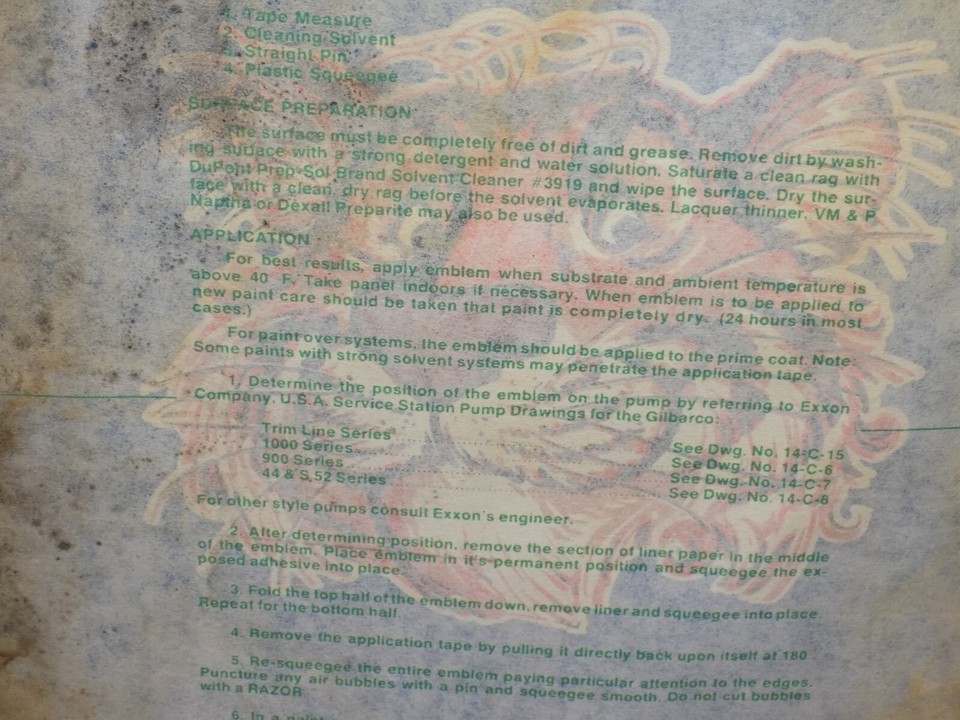 4. Tape Measure
2. Cleaning Solvent
3. Straight Pin
4. Plastic Squeegee
SURFACE PREPARATION
The surface must be completely free of dirt and grease. Remove dirt by wash-
ing surface with a strong detergent and water solution. Saturate a clean rag with
DuPont Prep-Sol Brand Solvent Cleaner #3919 and wipe the surface. Dry the sur-
face with a clean, dry rag before the solvent evaporates. Lacquer thinner, VM & P
Naptha or Dexall Preparite may also be used.
APPLICATION
For best results, apply emblem when substrate and ambient temperature is
above 40° F. Take panel indoors if necessary. When emblem is to be applied to
new paint care should be taken that paint is completely dry. (24 hours in most
cases.)
For paint over systems, the emblem should be applied to the prime coat. Note:
Some paints with strong solvent systems may penetrate the application tape.
1. Determine the position of the emblem on the pump by referring to Exxon
Company, U.S.A. Service Station Pump Drawings for the Gilbarco:
Trim Line Series See Dwg. No. 14-C-15
1000 Series See Dwg. No. 14-C-6
900 Series See Dwg. No. 14-C-7
44 & S,52 Series See Dwg. No. 14-C-8
For other style pumps consult Exxon's engineer.
2. After determining position, remove the section of liner paper in the middle
of the emblem. Place emblem in it's permanent position and squeegee the ex-
posed adhesive into place.
3. Fold the top half of the emblem down, remove liner and squeegee into place.
Repeat for the bottom half.
4. Remove the application tape by pulling it directly back upon itself at 180
5. Re-squeegee the entire emblem paying particular attention to the edges.
Puncture any air bubbles with a pin and squeegee smooth. Do not cut bubbles
with a RAZOR
6. In a